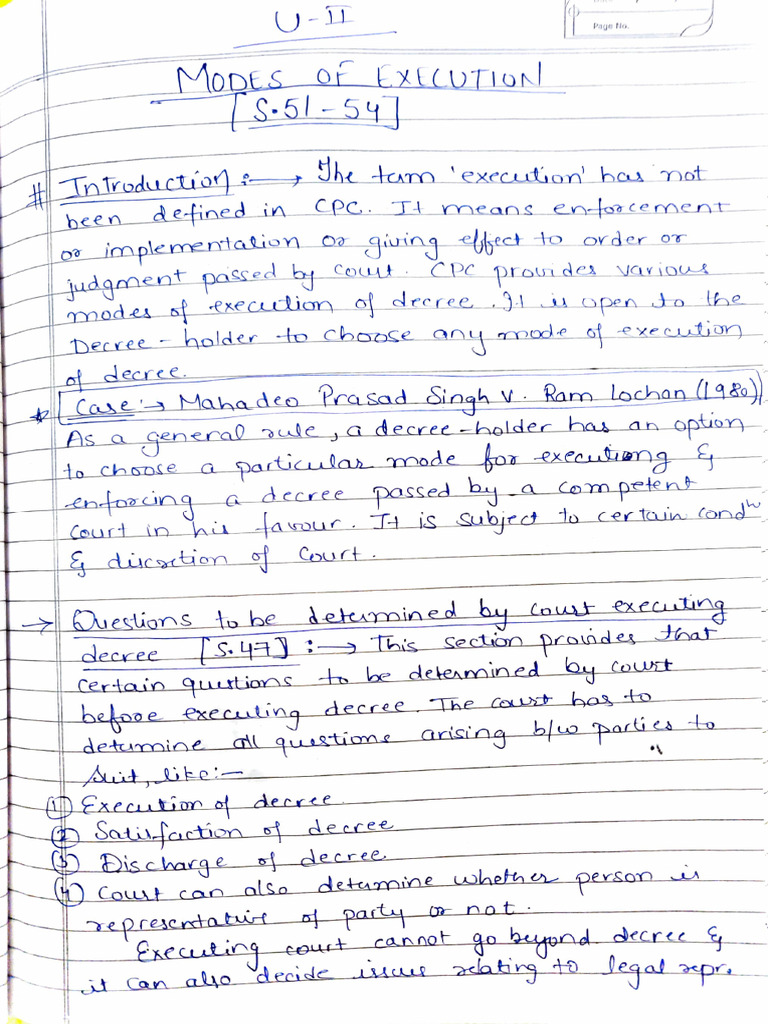 Page No.
U - II
MODES OF EXECUTION
[S.51 - 54]
# Introduction :- → The term 'execution' has not
been defined in CPC. It means enforcement
or implementation or giving effect to order or
judgment passed by court. CPC provides various
modes of execution of decree. It is open to the
Decree - holder to choose any mode of execution
of decree.
* Case :→ Mahadeo Prasad Singh v. Ram Lochan (1980)
As a general rule, a decree-holder has an option
to choose a particular mode for executiong &
enforcing a decree passed by a competent
court in his favour. It is subject to certain condn
& discretion of Court.
→ Questions to be determined by court executing
decree [S.47] :→ This section provides that
certain questions to be determined by court
before executing decree. The court has to
determine all questions arising b/w parties to
suit, like :-
① Execution of decree
② Satisfaction of decree
③ Discharge of decree
④ Court can also determine whether person is
representative of party or not.
Executing court cannot go beyond decree &
it can also decide issues relating to legal repr.